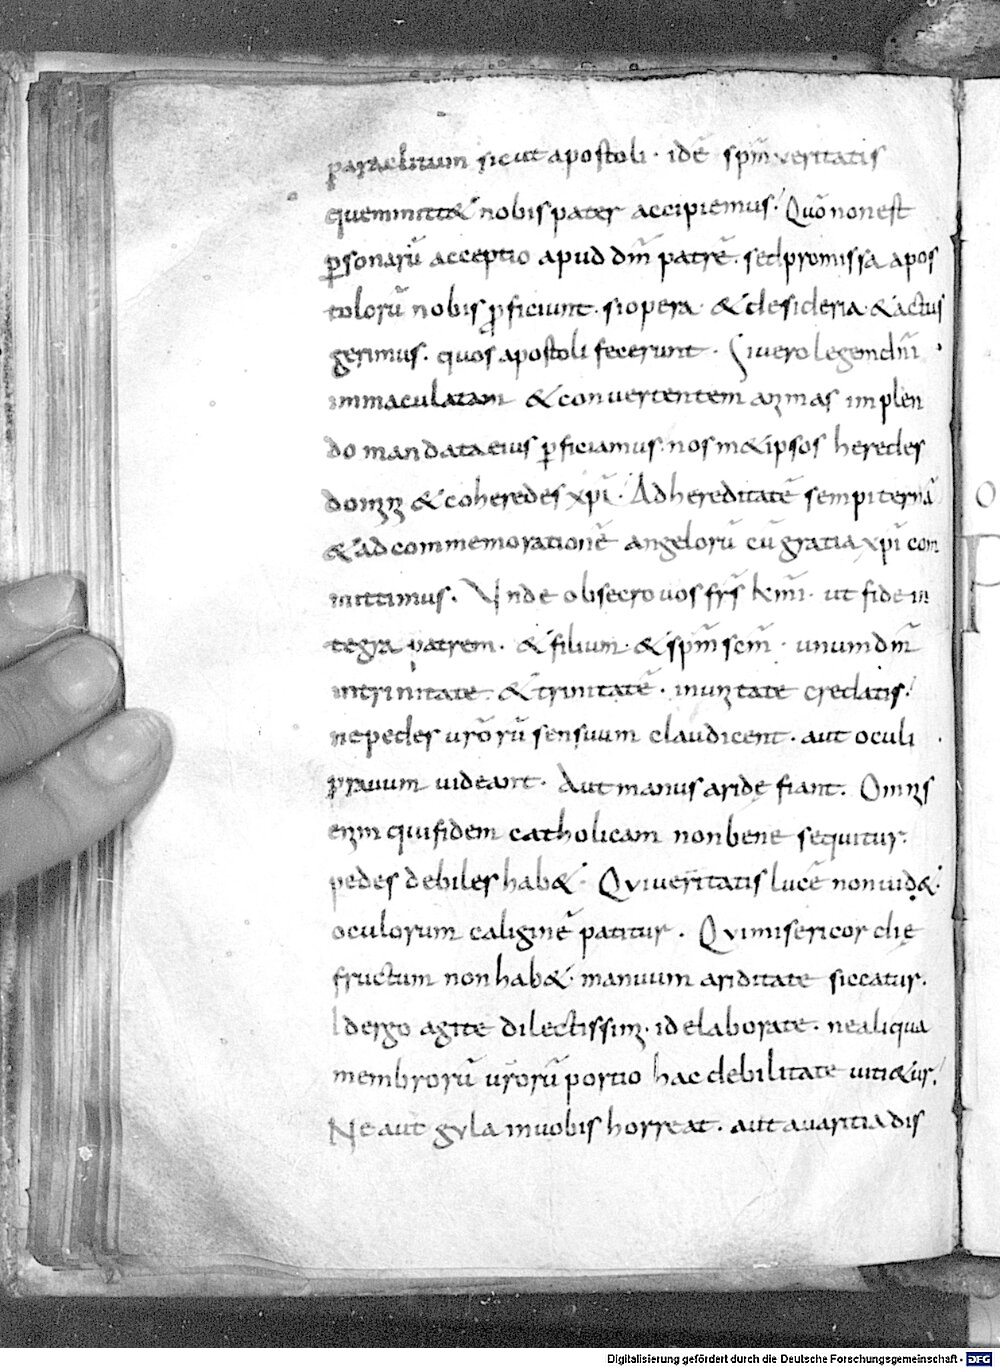 paraclitum sicut apostoli · idē spm̄ veritatis
quem mittet nobis pater accipiemus · Quō non est
ꝑsonarū acceptio apud dm̄ patrē · sed promissa apos
tolorū nobis ꝓficiunt · si opera · & desideria · & actus
gerimus · quos apostoli fecerunt · Si vero legem dn̄i ·
immaculatam & convertentem animas implen
do mandata eius ꝑficiamus · nosm&ipsos heredes
domini & coheredes xp̄i · Ad hereditatē sempiternā
& ad commemorationē angelorū cū gratia xp̄i com
mittimus · Unde obsecro vos frs̄ kmī · ut fide in
tegra patrem · & filium · & spm̄ scm̄ · unum dm̄
in trinitate · & trinitatē · in unitate credatis ·
ne pedes vrōrū sensuum claudicent · aut oculi ·
pravum videant · Aut manus aride fiant · Omnis
enim qui fidem catholicam non bene sequitur ·
pedes debiles hab& · Qui veritatis lucē non vid& ·
oculorum caliginē patitur · Qui misericordię
fructum non hab& · manuum ariditate siccatur ·
Id ergo agite dilectissimi · id elaborate · ne aliqua
membrorū vrōrū portio hac debilitate viti&ur ·
Ne aut gyla in vobis horreat · aut avaritia dis
Digitalisierung gefördert durch die Deutsche Forschungsgemeinschaft - DFG